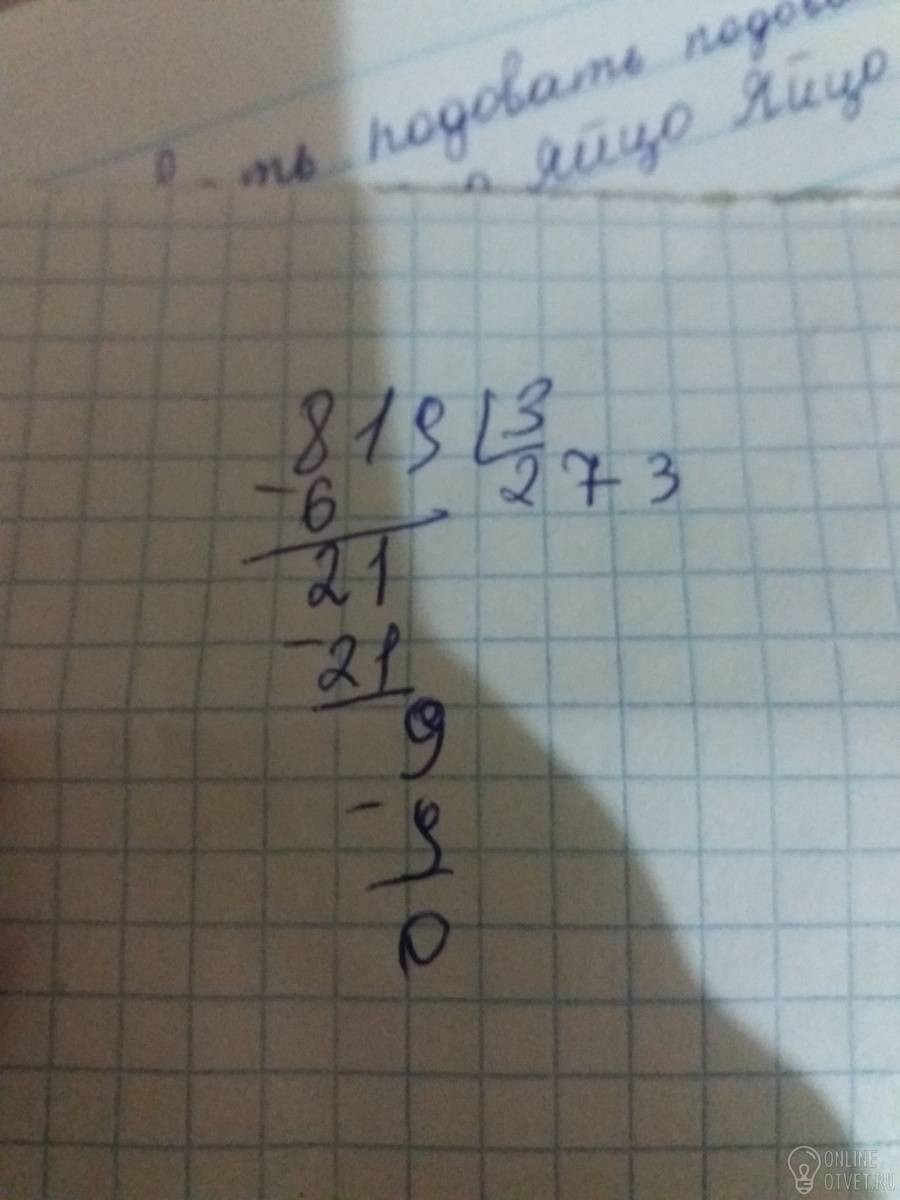 подовать
ть подовать
яйцо Яйцо
819 3
- 6 273
21
- 21
9
- 9
0
ONLINE
OTVET.RU